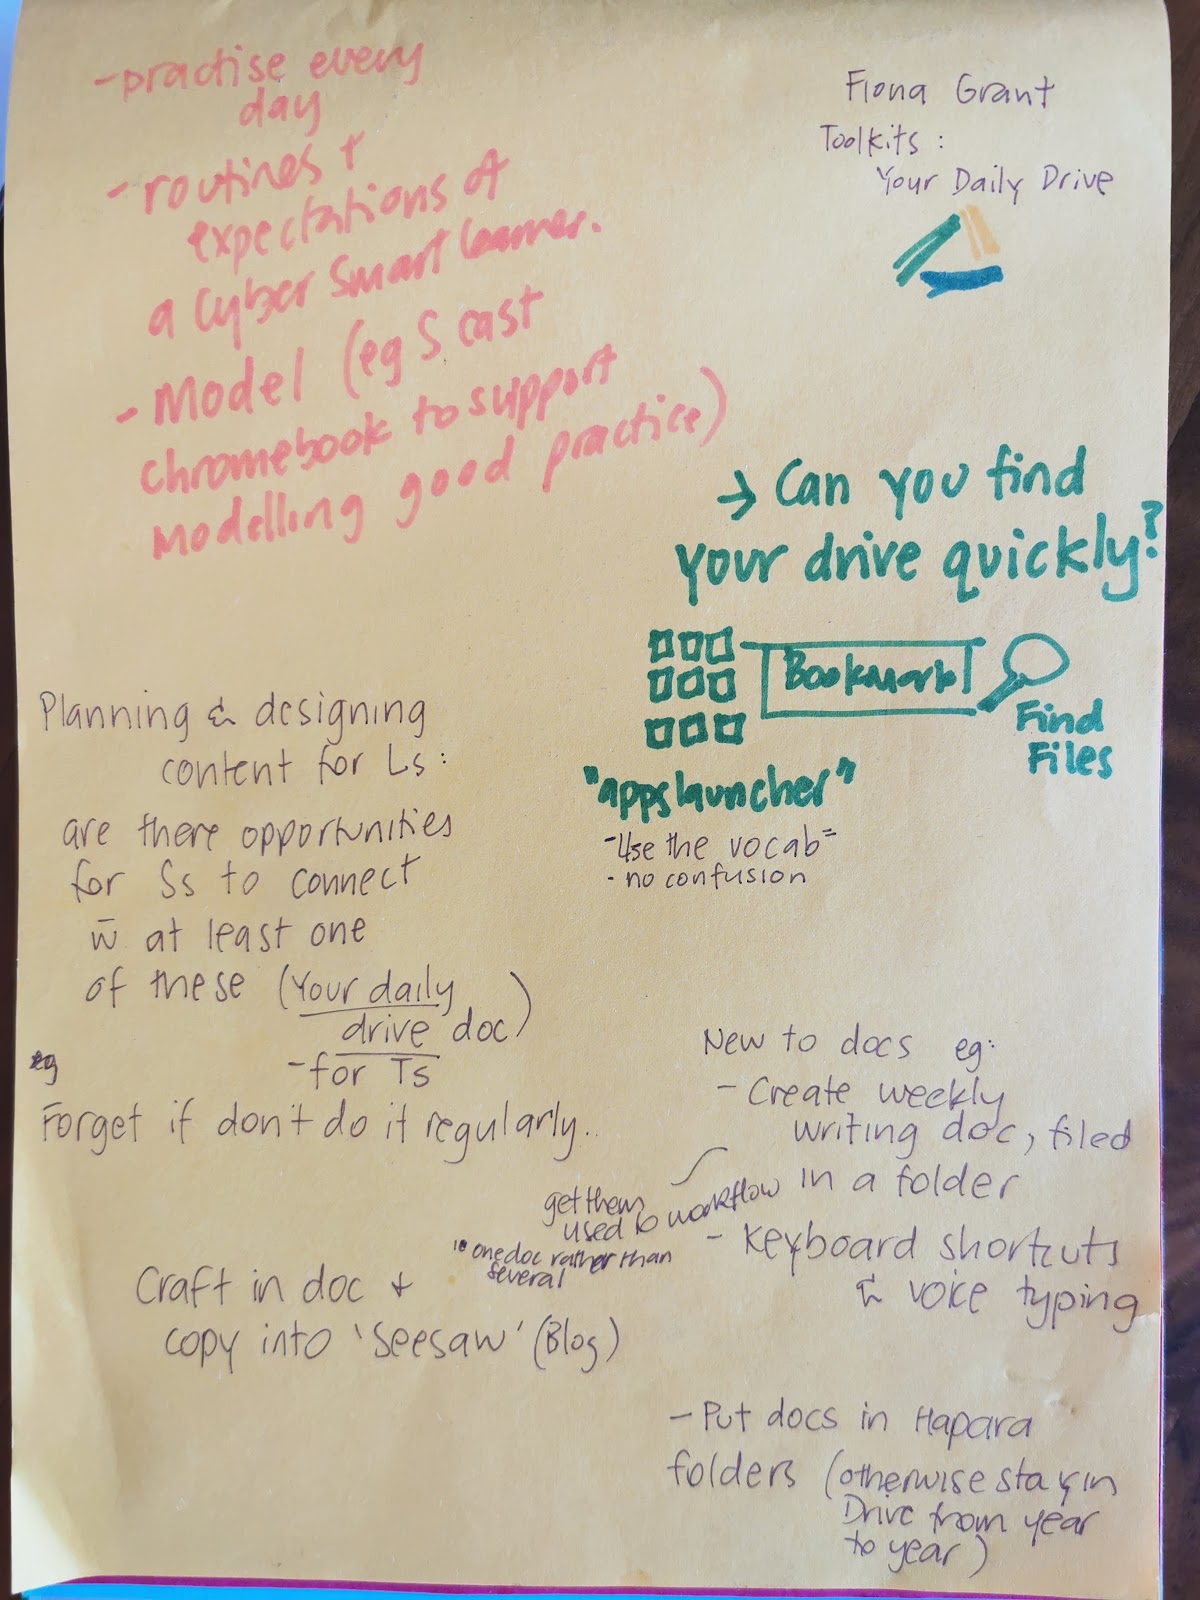 Fiona Grant
Toolkits :
Your Daily Drive
- practise every
day
- routines +
expectations of
a Cyber Smart learner.
- Model (eg S cast
chromebook to support
modelling good practice)
→ Can you find
your drive quickly?
Bookmark
Find
Files
"apps launcher"
- Use the vocab =
- no confusion
Planning & designing
content for Ls :
are there opportunities
for Ss to connect
w̄ at least one
of these (Your daily
drive doc)
- for Ts
eg
Forget if don't do it regularly..
New to docs eg:
- Create weekly
writing doc, filed
in a folder
get them
used to workflow
" one doc rather than
several
- Keyboard shortcuts
& voice typing
Craft in doc +
copy into 'Seesaw' (Blog)
- Put docs in Hapara
folders (otherwise stay in
Drive from year
to year)